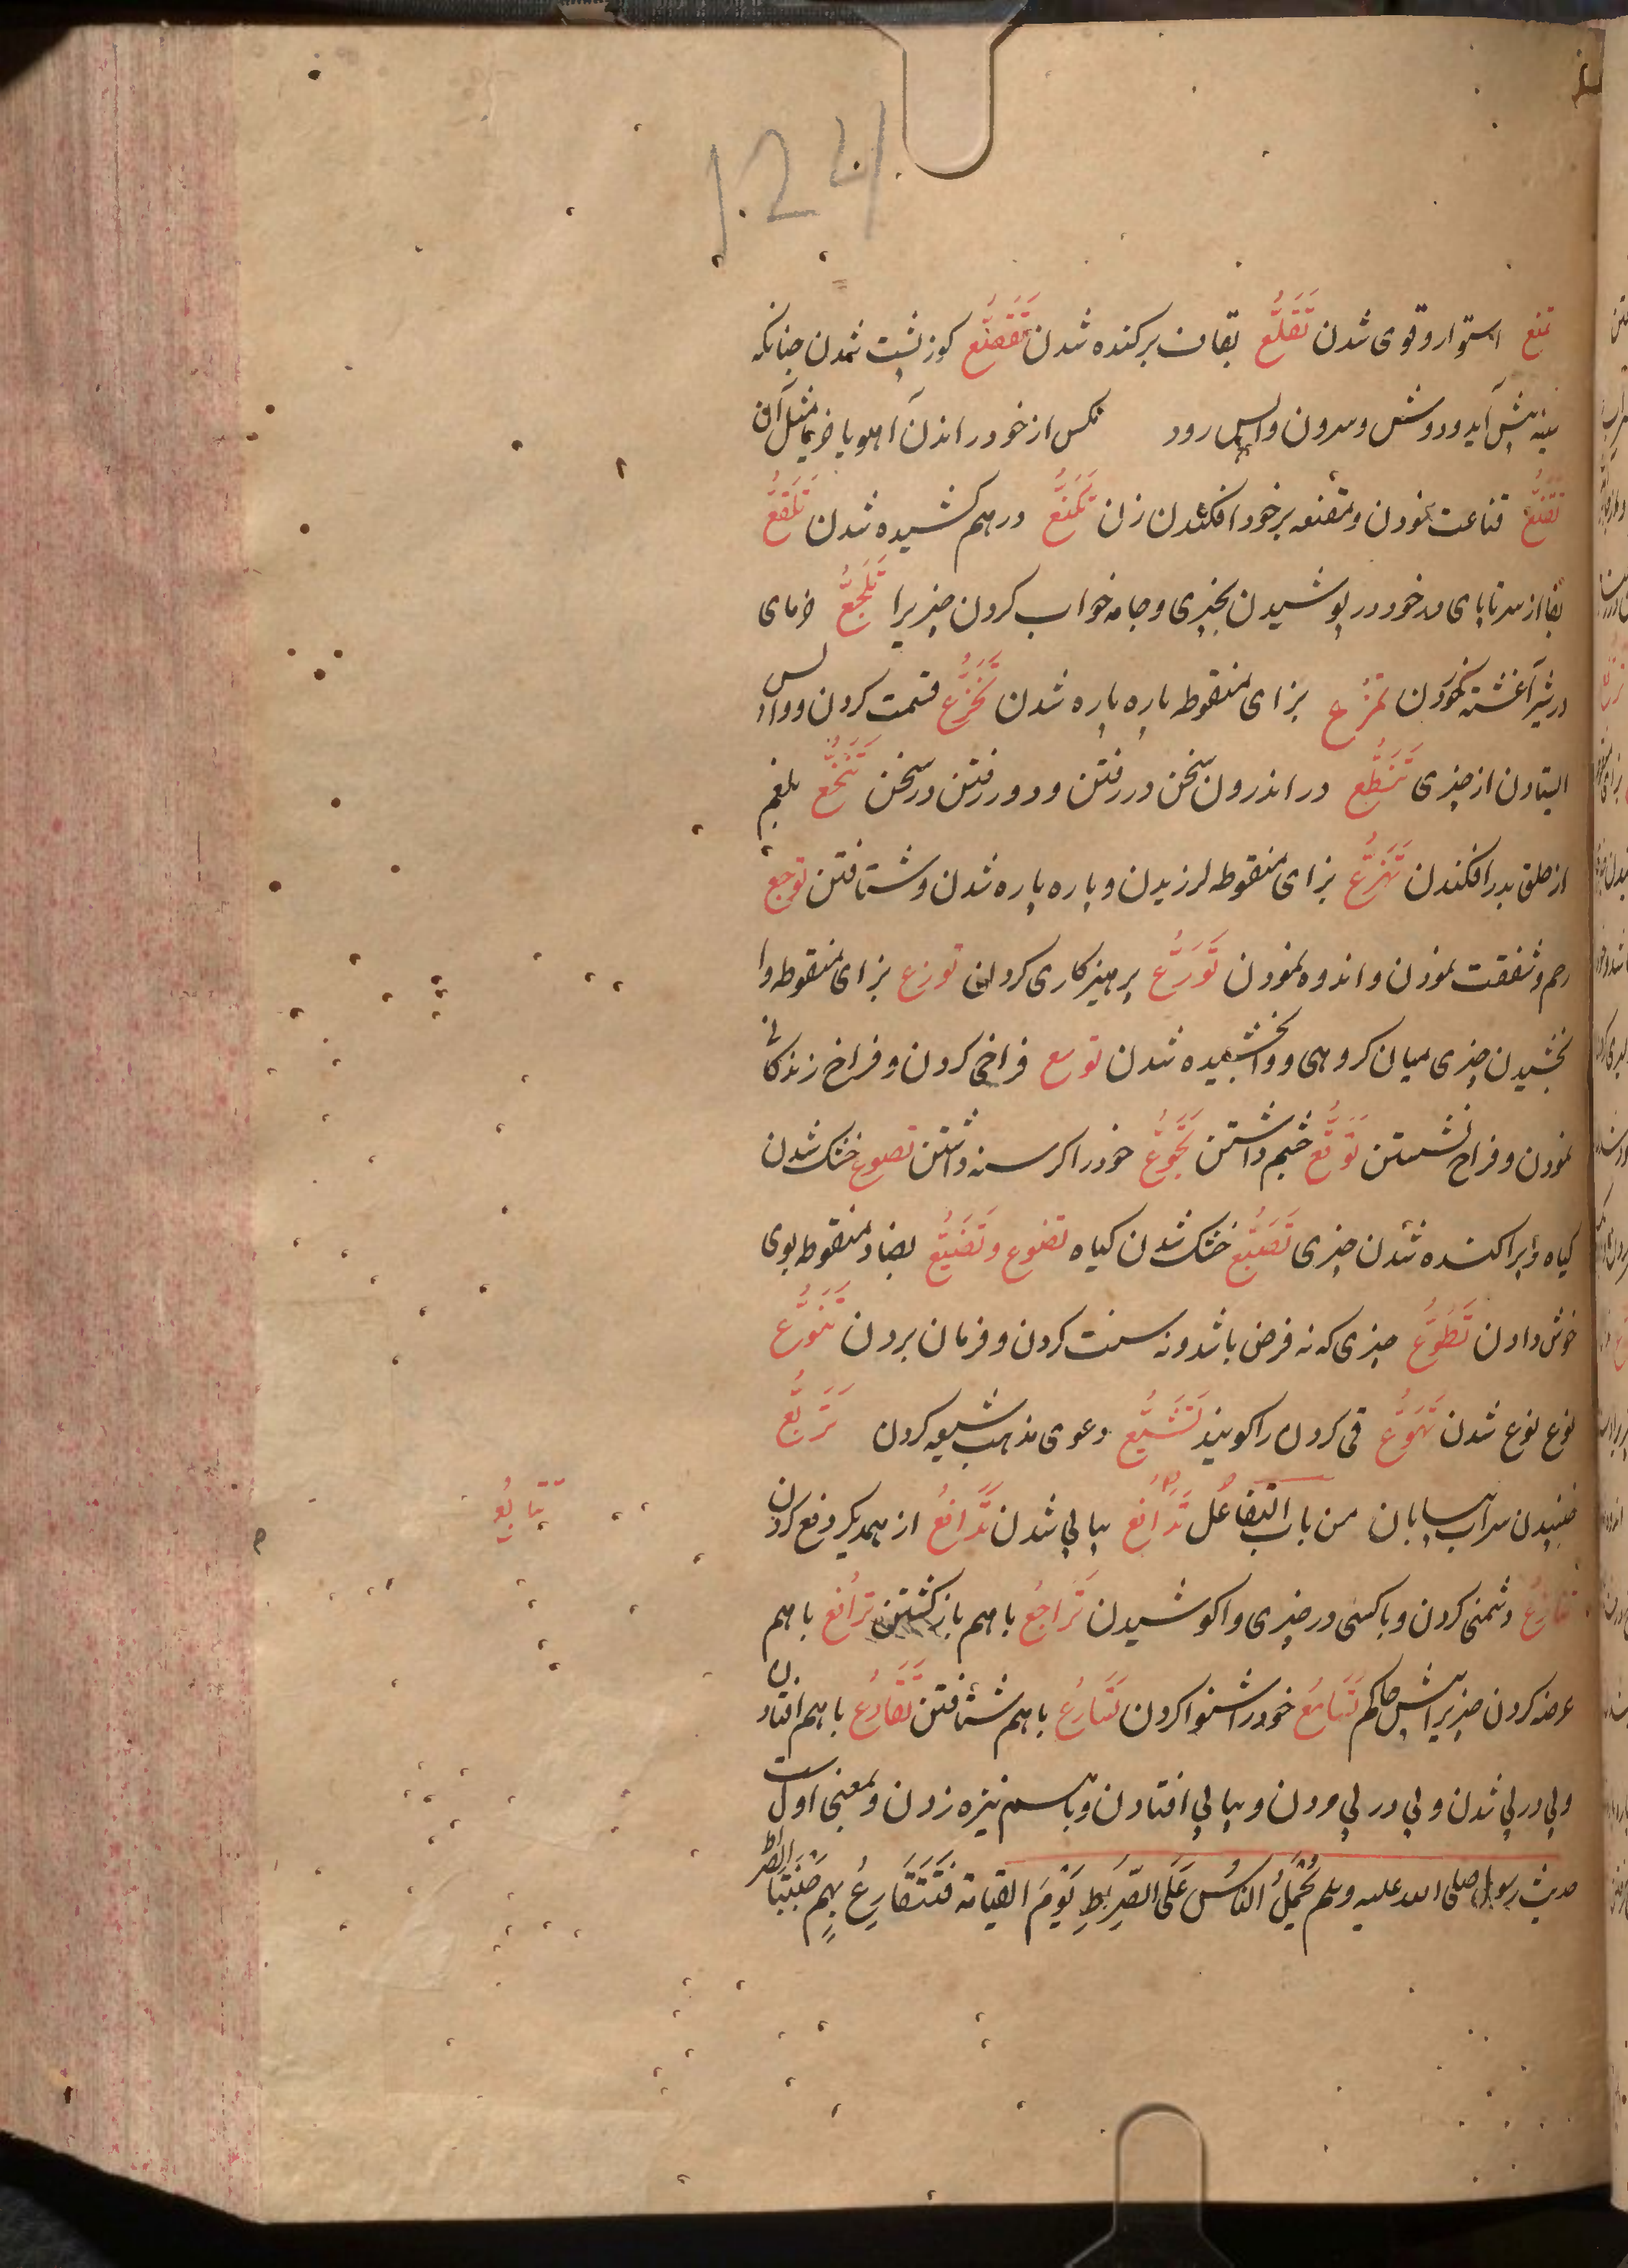 124
تمنع استوار و قوی شدن تَقَلُّع بقاف برکنده شدن تَقَعُّع کوز پشت شدن چنانکه
سینه پیش آید و دوش و سرون واپس رود مکس از خود راندن آهو یا خر یا مثل آن
تَقَنُّع قناعت نمودن و مقنعه بر خود افکندن زن تَكَنُّع درهم کشیده شدن تَلَفُّع
بفا از سر تا پای مرد خود در پوشیدن بچیزی و جامه خواب کردن چیزیرا تَمَجُّع خرمای
در شیر آغشته خوردن تمزع بزای منقوطه پاره پاره شدن تَخَزُّع قسمت کردن و واپس
ایستادن از چیزی تَنَطُّع در اندرون سخن در رفتن و دور رفتن در سخن تَنَخُّع بلغم
از حلق بدر افکندن تَهَزُّع بزای منقوطه لرزیدن و پاره پاره شدن و شتافتن توجع
رحم و شفقت نمودن و اندوه نمودن تَوَرُّع پرهیزکاری کردن توزع بزای منقوطه وا
بخشیدن چیزی میان کروهی و وابخشیده شدن توسع فراخی کردن و فراخ زندکانی
نمودن و فراخ نشستن تَوَقُّع چشم داشتن تَجَوُّع خود را کرسنه داشتن تصوع خشک شدن
کیاه و پراکنده شدن چیزی تَصَيُّع خشک شدن کیاه تضوع و تَضَيُّع بضاد منقوط بوی
خوش دادن تَطَوُّع چیزی که نه فرض باشد و نه سنت کردن و فرمان بردن تَنَوُّع
نوع نوع شدن تَهَوُّع قی کردن را کویند تَشَيُّع دعوی مذهب شیعه کردن تَرَيُّع
جنبیدن سراب بیابان من باب التفاعُل تَدَافُع پیاپی شدن تَدَافُع از همدیکر دفع کردن
تَتَابُع
تنازعُ دشمنی کردن و باکسی در چیزی واکوشیدن تَراجُع باهم بازکشتن ترافع باهم
عرضه کردن چیزیرا پیش حاکم تَسَامُع خود را شنوا کردن تَسَارُع باهم شتافتن تَقَادُع باهم افتادن
و پی در پی شدن و پی در پی مردن و پیاپی افتادن و باهم نیزه زدن و بمعنی اول است
حدیث رسول صلی الله علیه وسلم يُحْمَلُ النَاسُ عَلَى الصِّرَاطِ يَوْمَ القيامة فَتَتَقَارِعُ بِهِم جَنَبَتَا الصراط